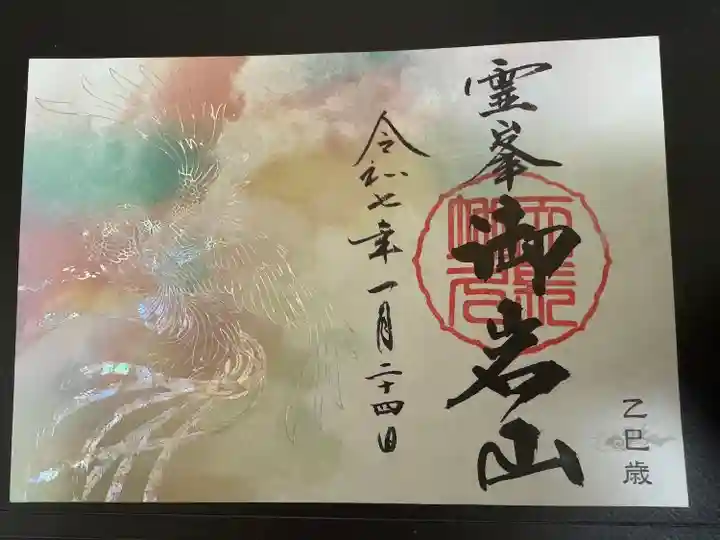 霊峯御岩山
令和七年一月二十四日
乙巳歳